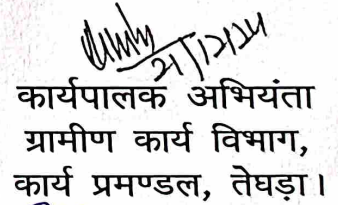 21/12/24
कार्यपालक अभियंता
ग्रामीण कार्य विभाग,
कार्य प्रमण्डल, तेघड़ा।